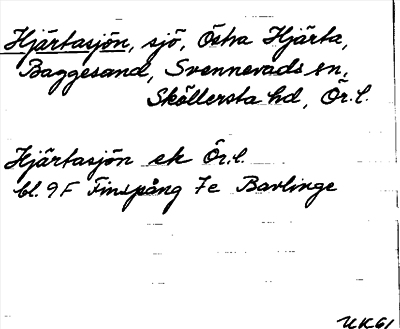 Hjärtasjön, sjö, Östra Hjärta,
Baggesand, Svennevads sn,
Sköllersta hd, Ör. l.
Hjärtasjön ek Ör. l.
bl. 9F Finspång 7e Bavlinge
UK61